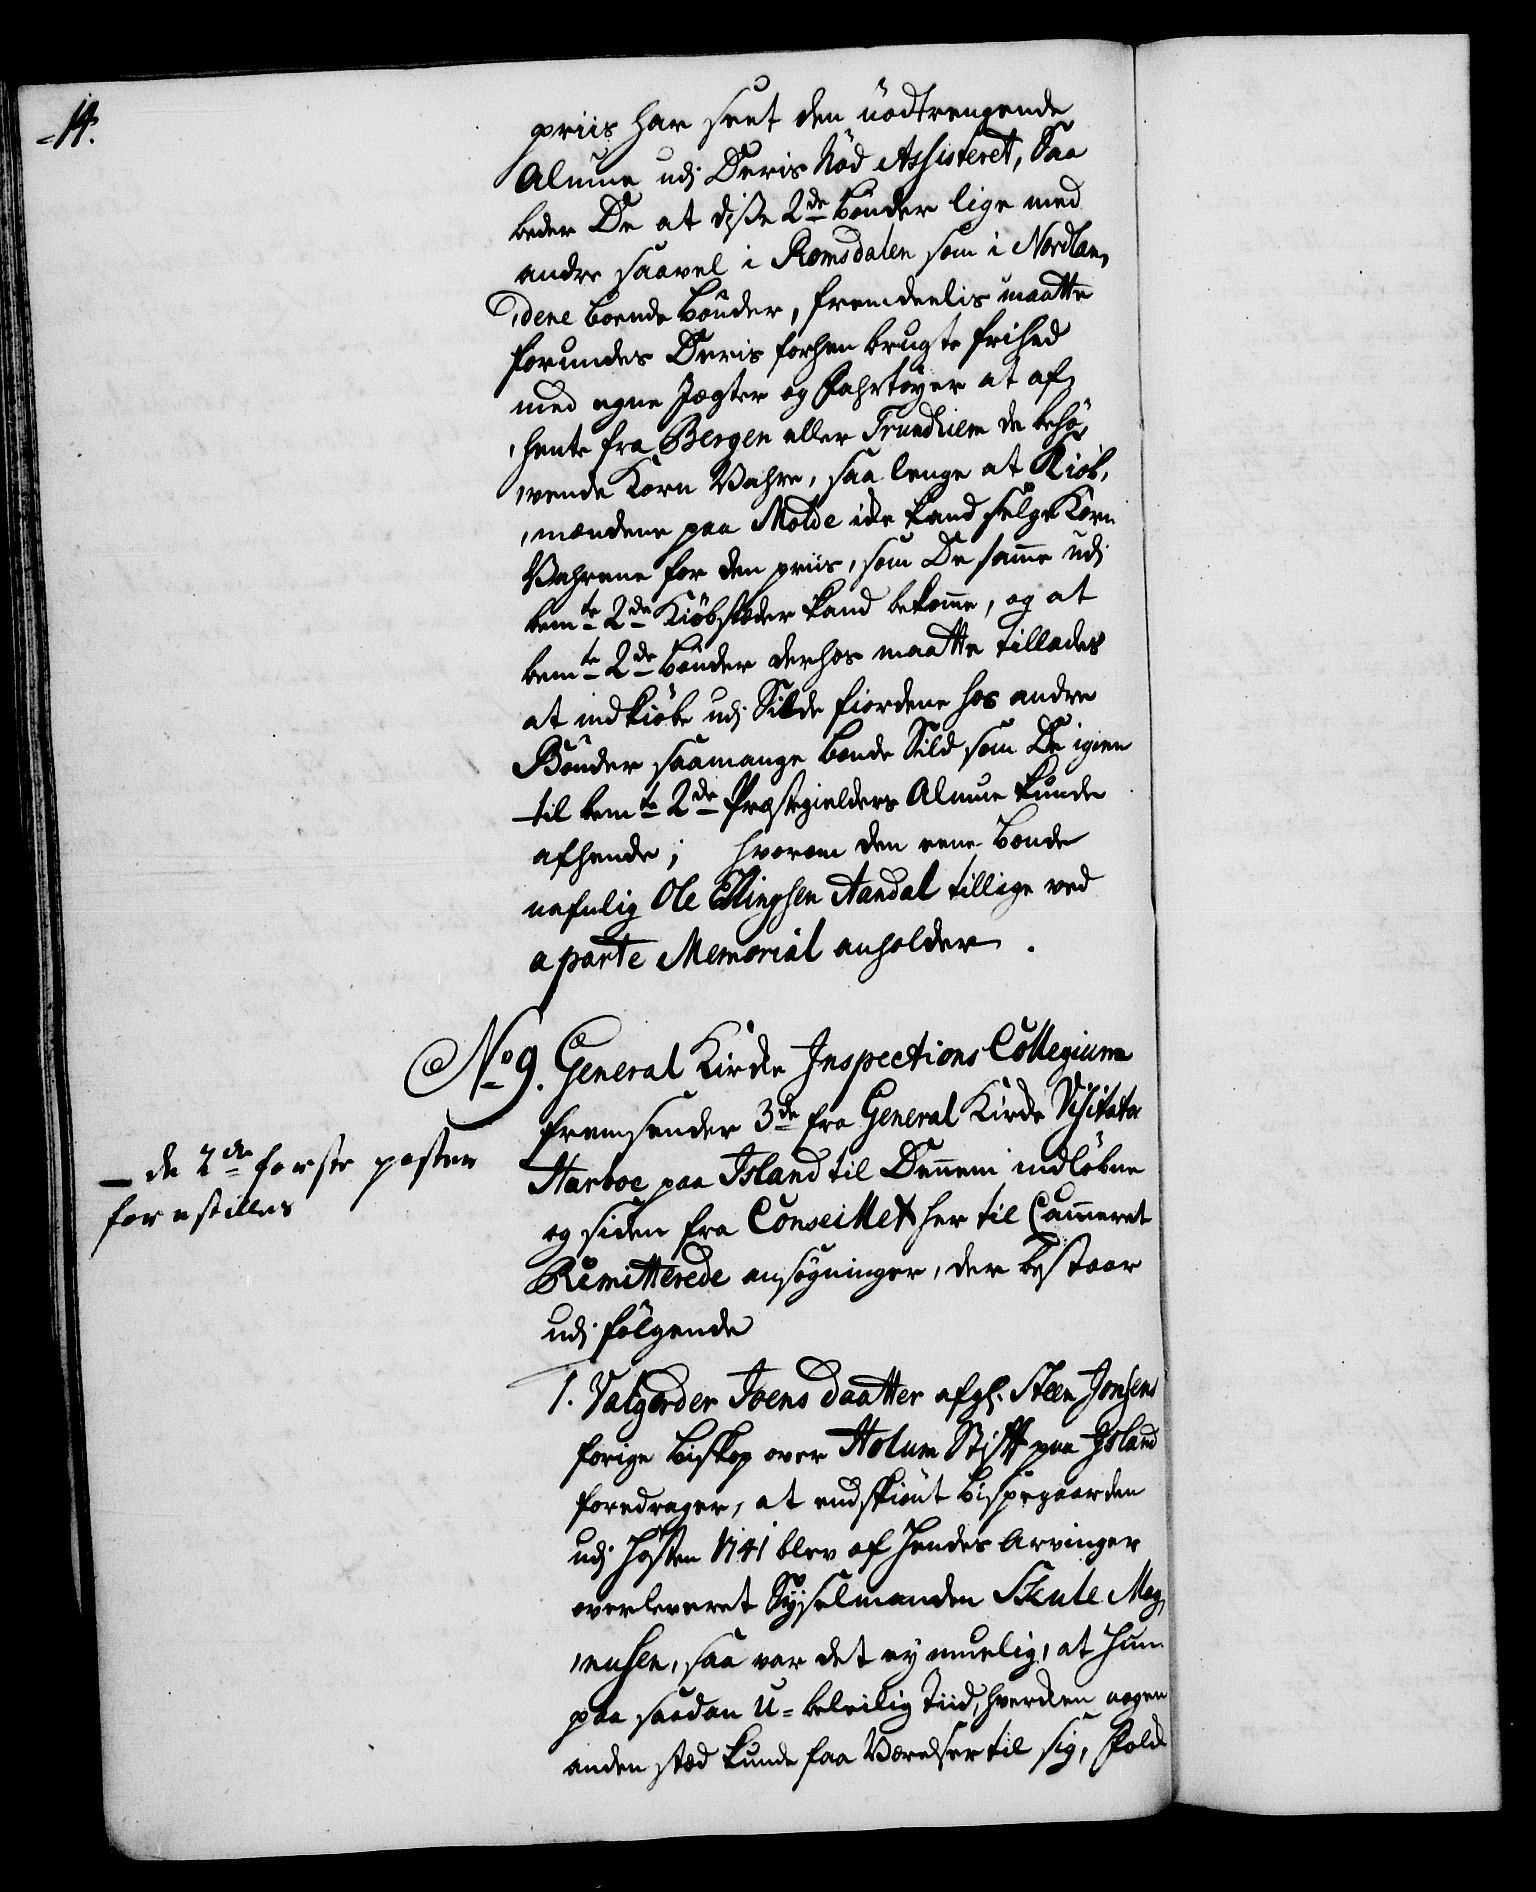 14.
priis har seet den nödtrengende
Almue udj Deris Nöd Assisteret, Saa
beder De at disse 2de Bönder lige med
andre saavel i Romsdalen som i Nordlan,
,dene boende Bönder, fremdeelis maatte
forundes Deris forhen brugte frihed
med egne Jægter og Fahrtöyer at af,
,hente fra Bergen eller Trundhiem de behö,
,vende Korn Vahre, saa lenge at Kiöb,
,mændene paa Molde icke kand selge Korn
Vahrene for den priis, som De samme udj
bemte 2de Kiöbstæder kand bekomme, og at
bemte 2de Bönder derhos maatte tillades
at indkiöbe udj Silde fiordene hos andre
Bönder saamange bonde Sild som De igien
til bemte 2de Præstegielders Almue kunde
afhende; hvorom den eene Bonde
nafnlig Ole Ellingsen Aandal tillige ved
a parte Memorial anholder.
No 9. General Kircke Inspections Collegium
fremsender 3de fra General Kircke Visitator
Harboe paa Island til Dennem indlöbne
og siden fra Conseillet her til Cammeret
Remitterede ansögninger, der bestaar
udj fölgende
_ de 2de förste poster
forestilles
1. Valgerder Joens daatter afgl. Steen Jonsens
forige Biskop over Holum Stift paa Island
foredrager, at endskiönt Bispegaarden
udj Hösten 1741 blev af Hendes Arvinger
overleveret Sysselmanden Skule Mag,
,nusen, saa var det ey muelig, at Hun
paa saadan U-beleilig Tiid, hvercken nogen
anden stæd kunde faa Værelser til sig, Folck